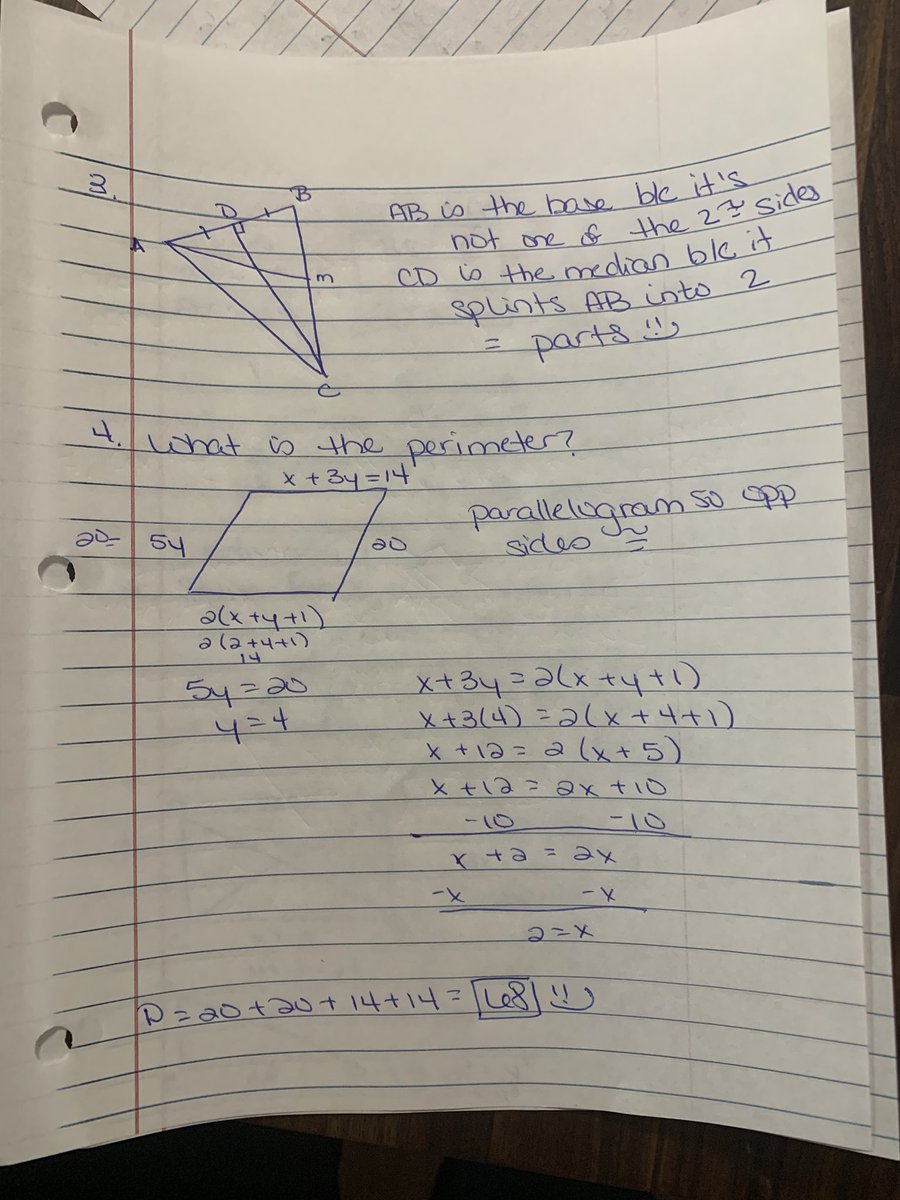 3.
B
D
A
m
C
AB is the base b/c it's
not one of the 2 ≅ sides
CD is the median b/c it
splints AB into 2
= parts
4. What is the perimeter?
x + 3y = 14
20= 5y
20
parallelogram so opp
sides ≅
2(x+y+1)
2(2+4+1)
14
5y = 20
y = 4
x+3y = 2(x+y+1)
x+3(4) = 2(x+4+1)
x+12 = 2(x+5)
x+12 = 2x+10
-10 -10
x+2 = 2x
-x -x
2=x
P = 20+20+14+14 = 68